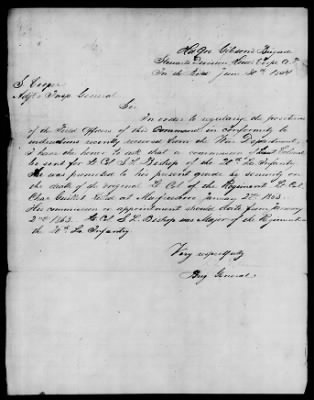 Hd Qrs Gibsons Brigade
Stewarts Division Hoods Corps A.T.
In the field June 30th 1864
S. Cooper
Adjt & Insp General
Sir
In order to regulate the positions
of the Field Officers of this Command in conformity to
instructions recently received from the War Department,
I have the honor to ask that a commission of Lieut Colonel
be sent for Lt Col S. L. Bishop of the 20th La Infantry.
He was promoted to his present grade by seniority on
the death of the original Lt Col of the Regiment Lt Col
Chas Guillet killed at Murfreesboro January 2nd 1863.
His commission or appointment should date from January
2nd 1863. Lt Col S L Bishop was Major of the Regiment
the 20th La Infantry.
Very respectfully
Brig General